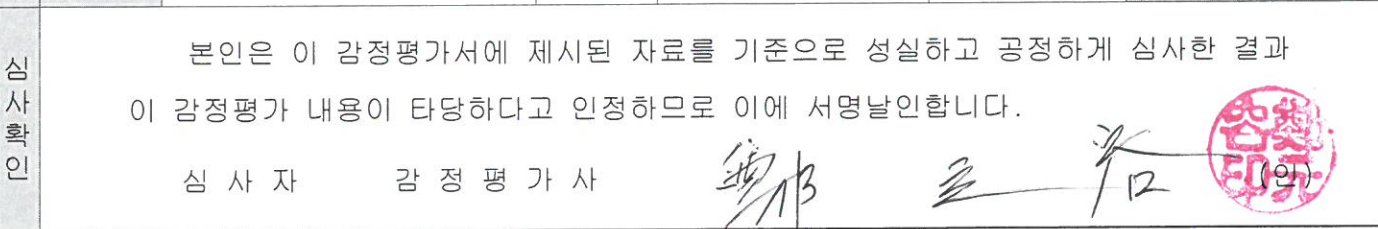 심사확인
본인은 이 감정평가서에 제시된 자료를 기준으로 성실하고 공정하게 심사한 결과
이 감정평가 내용이 타당하다고 인정하므로 이에 서명날인합니다.
심 사 자 감 정 평 가 사 (인)